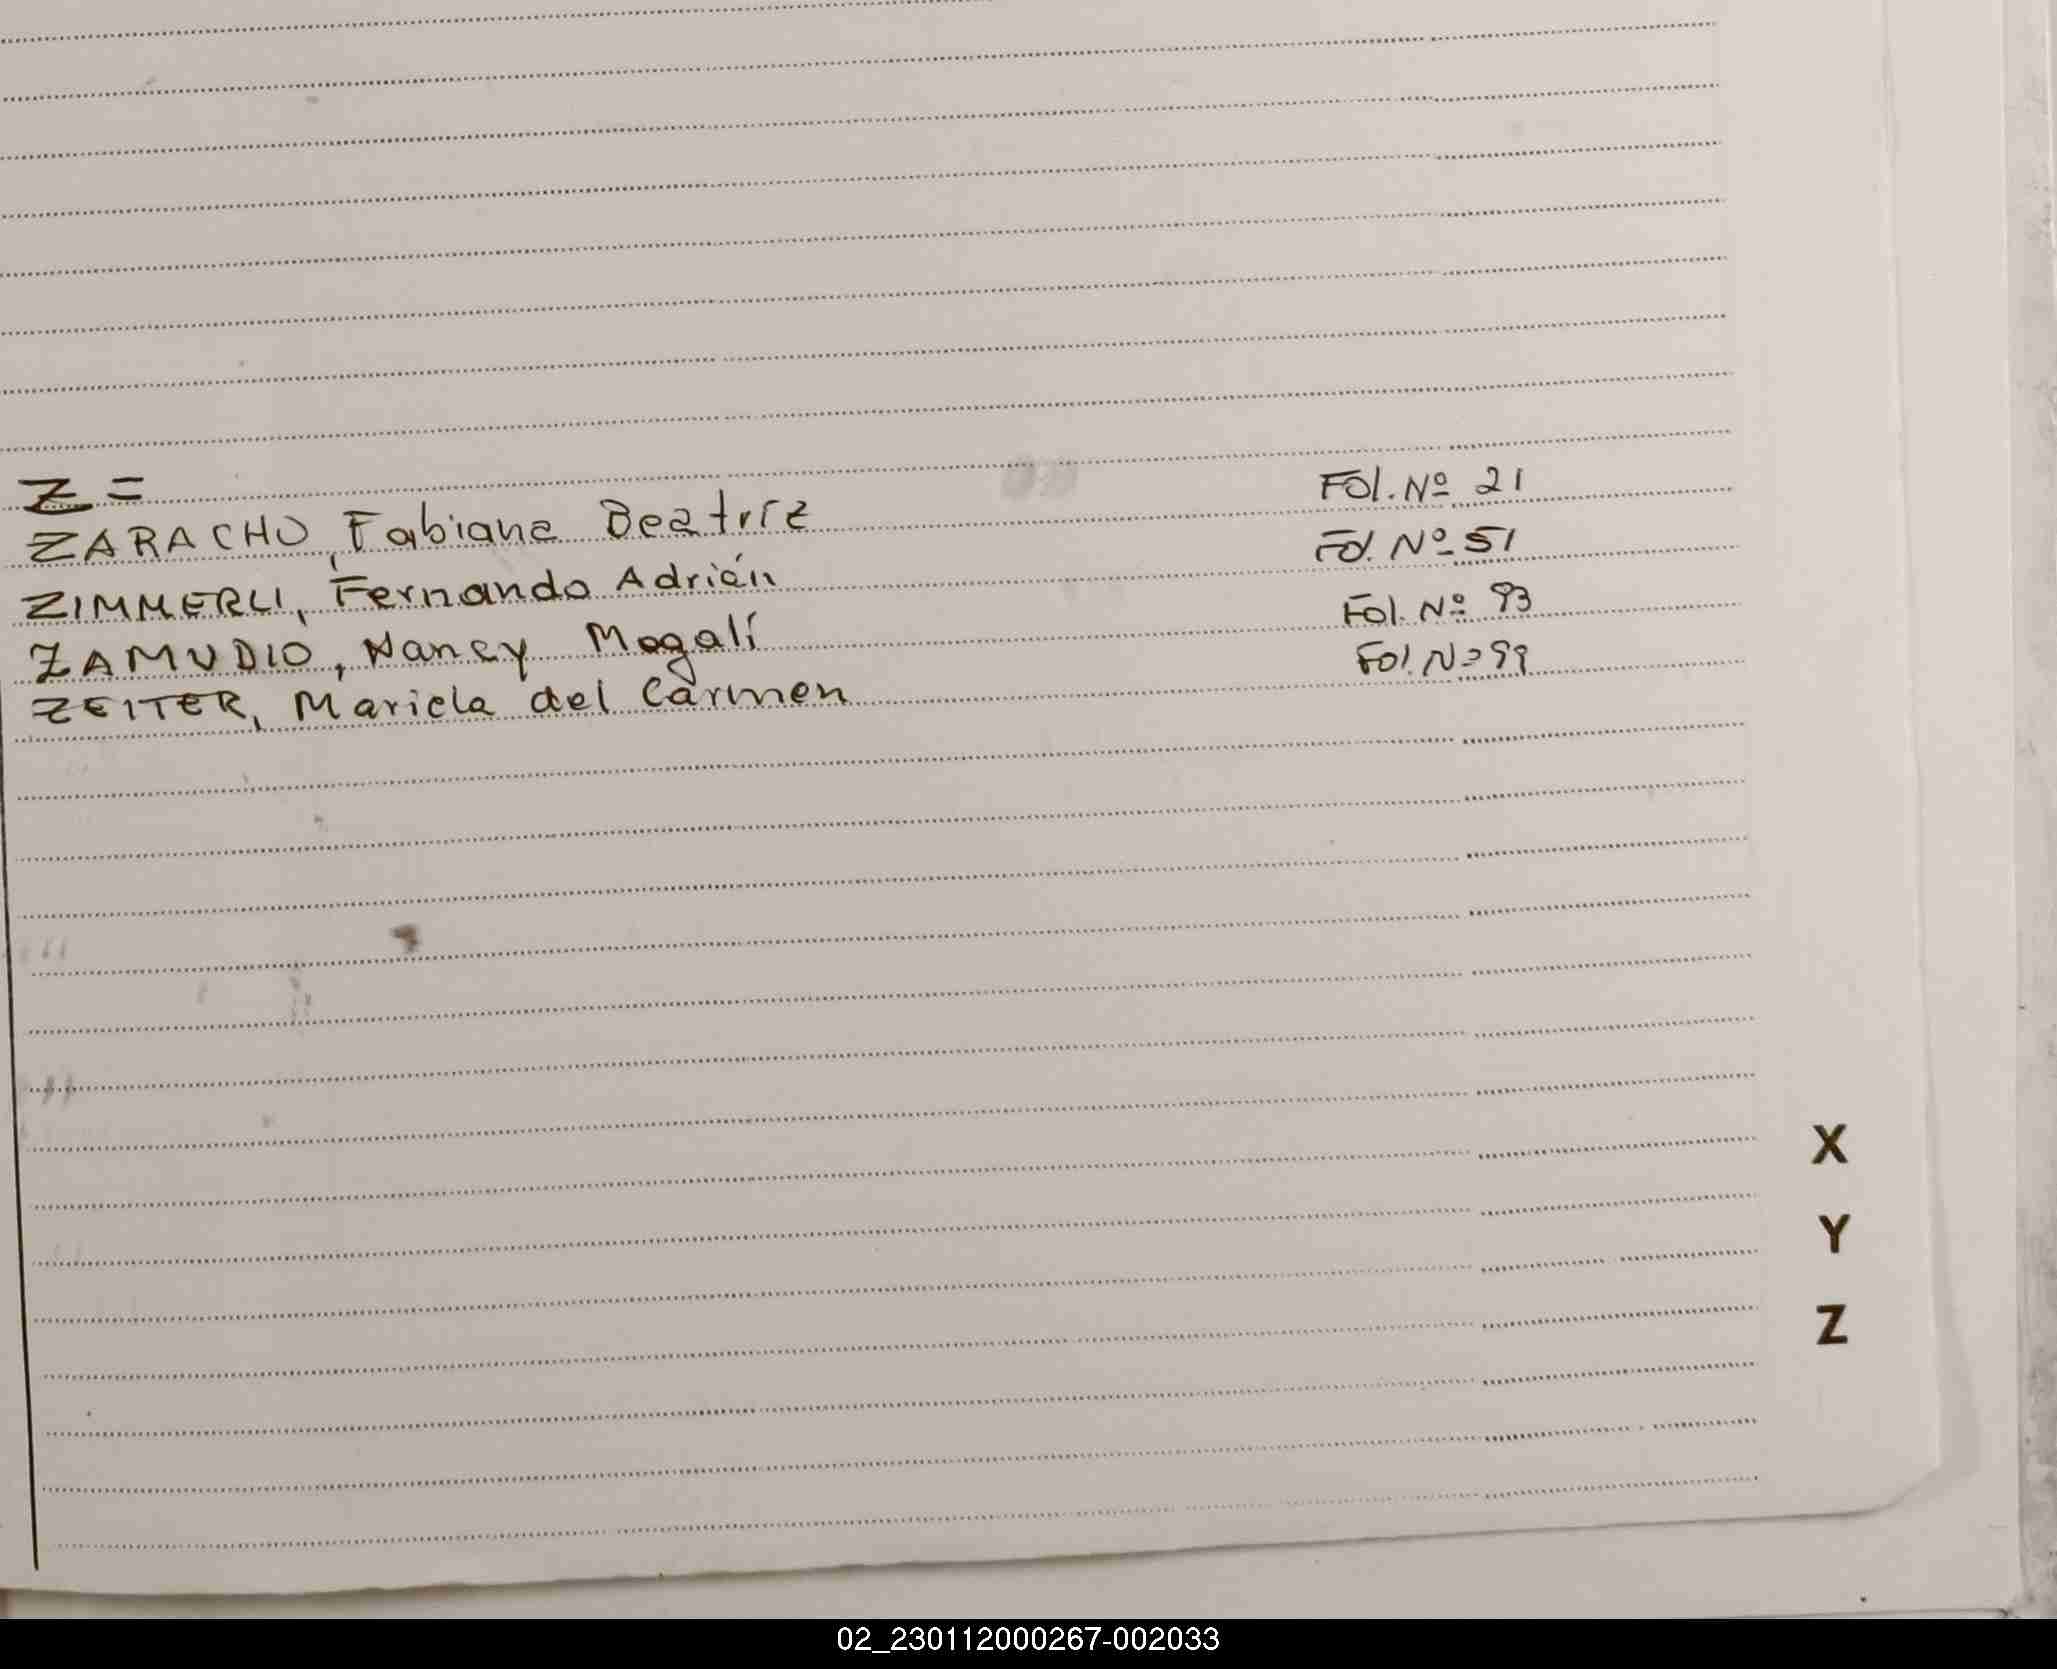 Z =
ZARACHO, Fabiana Beatriz Fol. Nº 21
ZIMMERLI, Fernando Adrián Fol. Nº 51
ZAMUDIO, Nancy Magalí Fol. Nº 93
ZEITER, Mariela del Carmen Fol. Nº 99
X
Y
Z
02_230112000267-002033